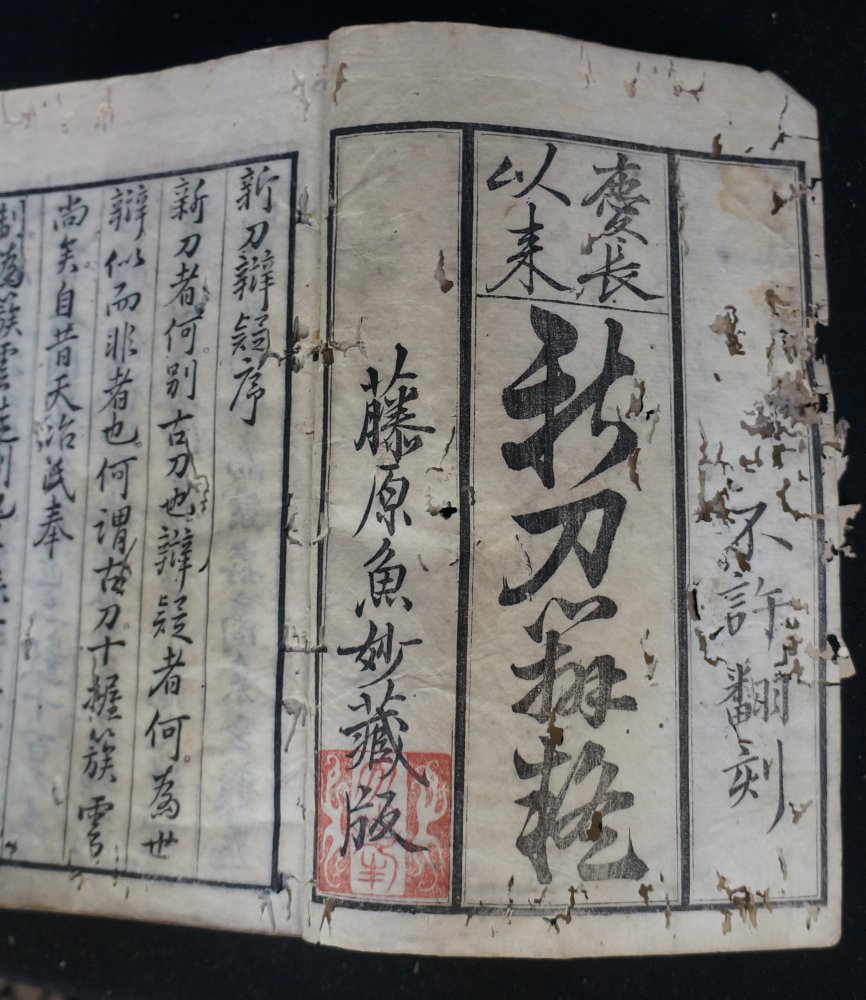 不許翻刻
慶長
以来
新刀辨疑
藤原魚妙藏版
新刀辯疑序
新刀者何。別古刀也。辯疑者何。為世
辯似而非者也。何謂古刀。十握簇雲
尚矣。自昔天治民奉
制為簇雲